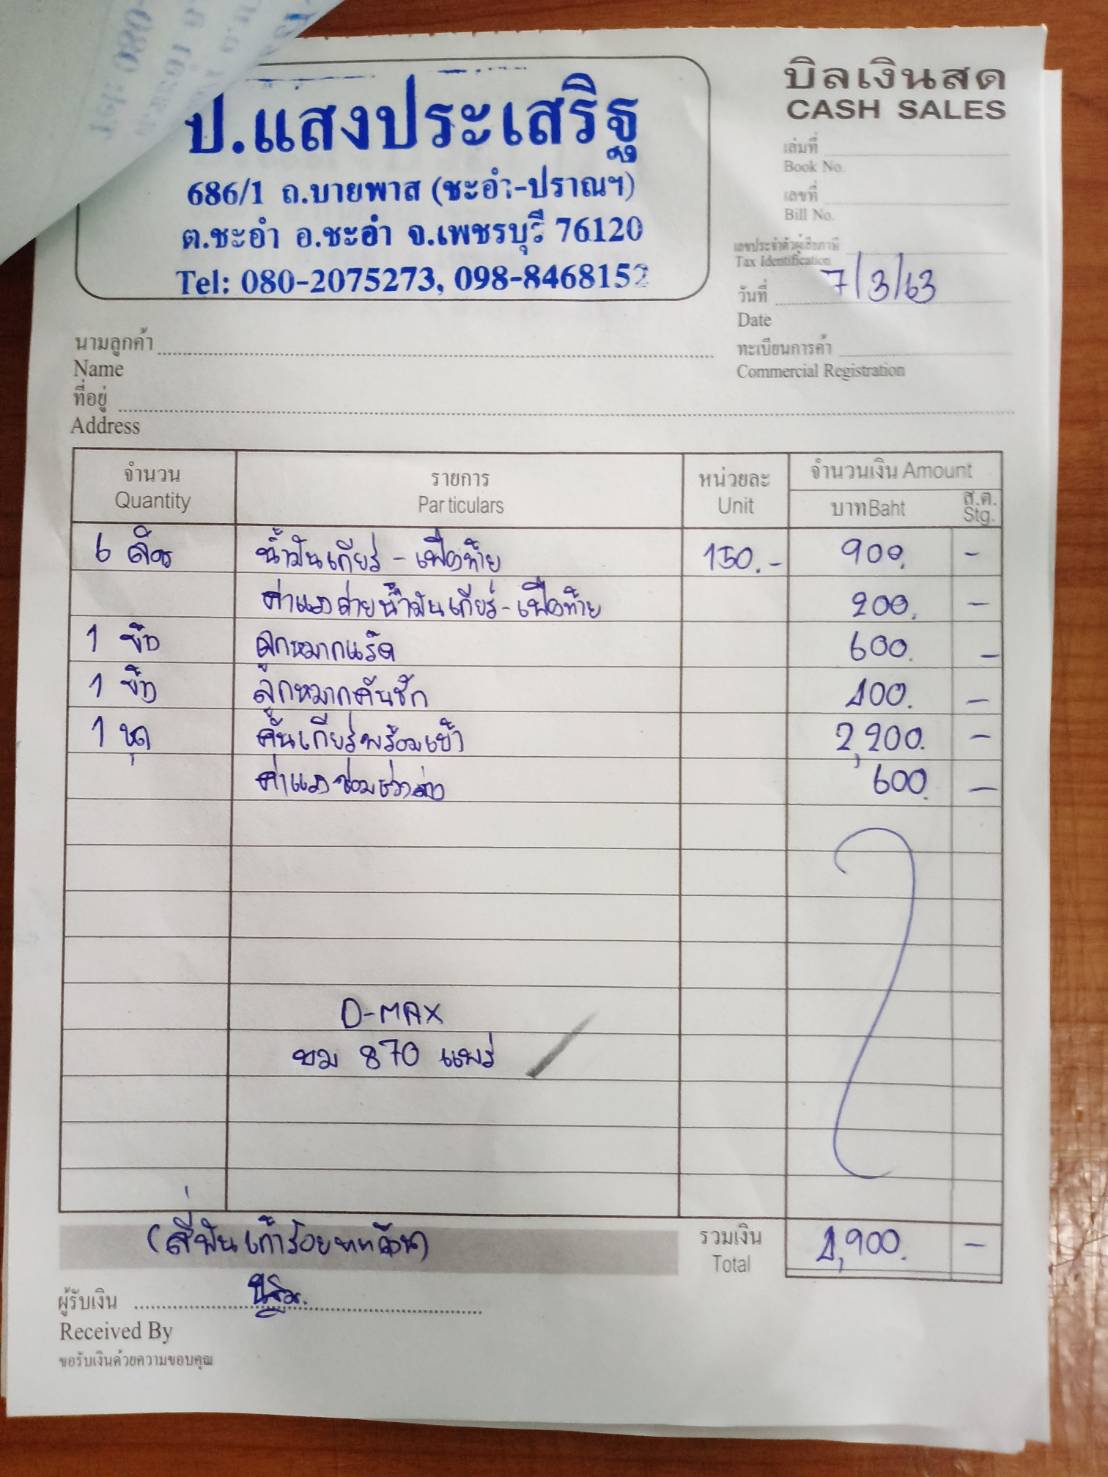 บิลเงินสด
CASH SALES
ป.แสงประเสริฐ
686/1 ถ.บายพาส (ชะอำ-ปราณฯ)
ต.ชะอำ อ.ชะอำ จ.เพชรบุรี 76120
Tel: 080-2075273, 098-8468152
เล่มที่
Book No.
เลขที่
Bill No.
เลขประจำตัวผู้เสียภาษี
Tax Identification
วันที่ 7/3/63
Date
ทะเบียนการค้า
Commercial Registration
นามลูกค้า
Name
ที่อยู่
Address
จำนวน รายการ หน่วยละ จำนวนเงิน Amount
Quantity Particulars Unit บาท Baht ส.ต. Stg.
6 ลิตร น้ำมันเกียร์ - เฟืองท้าย 150.- 900. -
ค่าแรงถ่ายน้ำมันเกียร์ - เฟืองท้าย 200. -
1 ข้าง ลูกหมากแร็ค 600. -
1 ข้าง ลูกหมากคันชัก 400. -
1 ชุด คันเกียร์พร้อมเบ้า 2,200. -
ค่าแรงซ่อมช่วงล่าง 600. -
D-MAX
ขม 870 แพร่
(สี่พันเก้าร้อยบาทถ้วน) รวมเงิน 4,900. -
Total
ผู้รับเงิน
Received By
ขอรับเงินด้วยความขอบคุณ